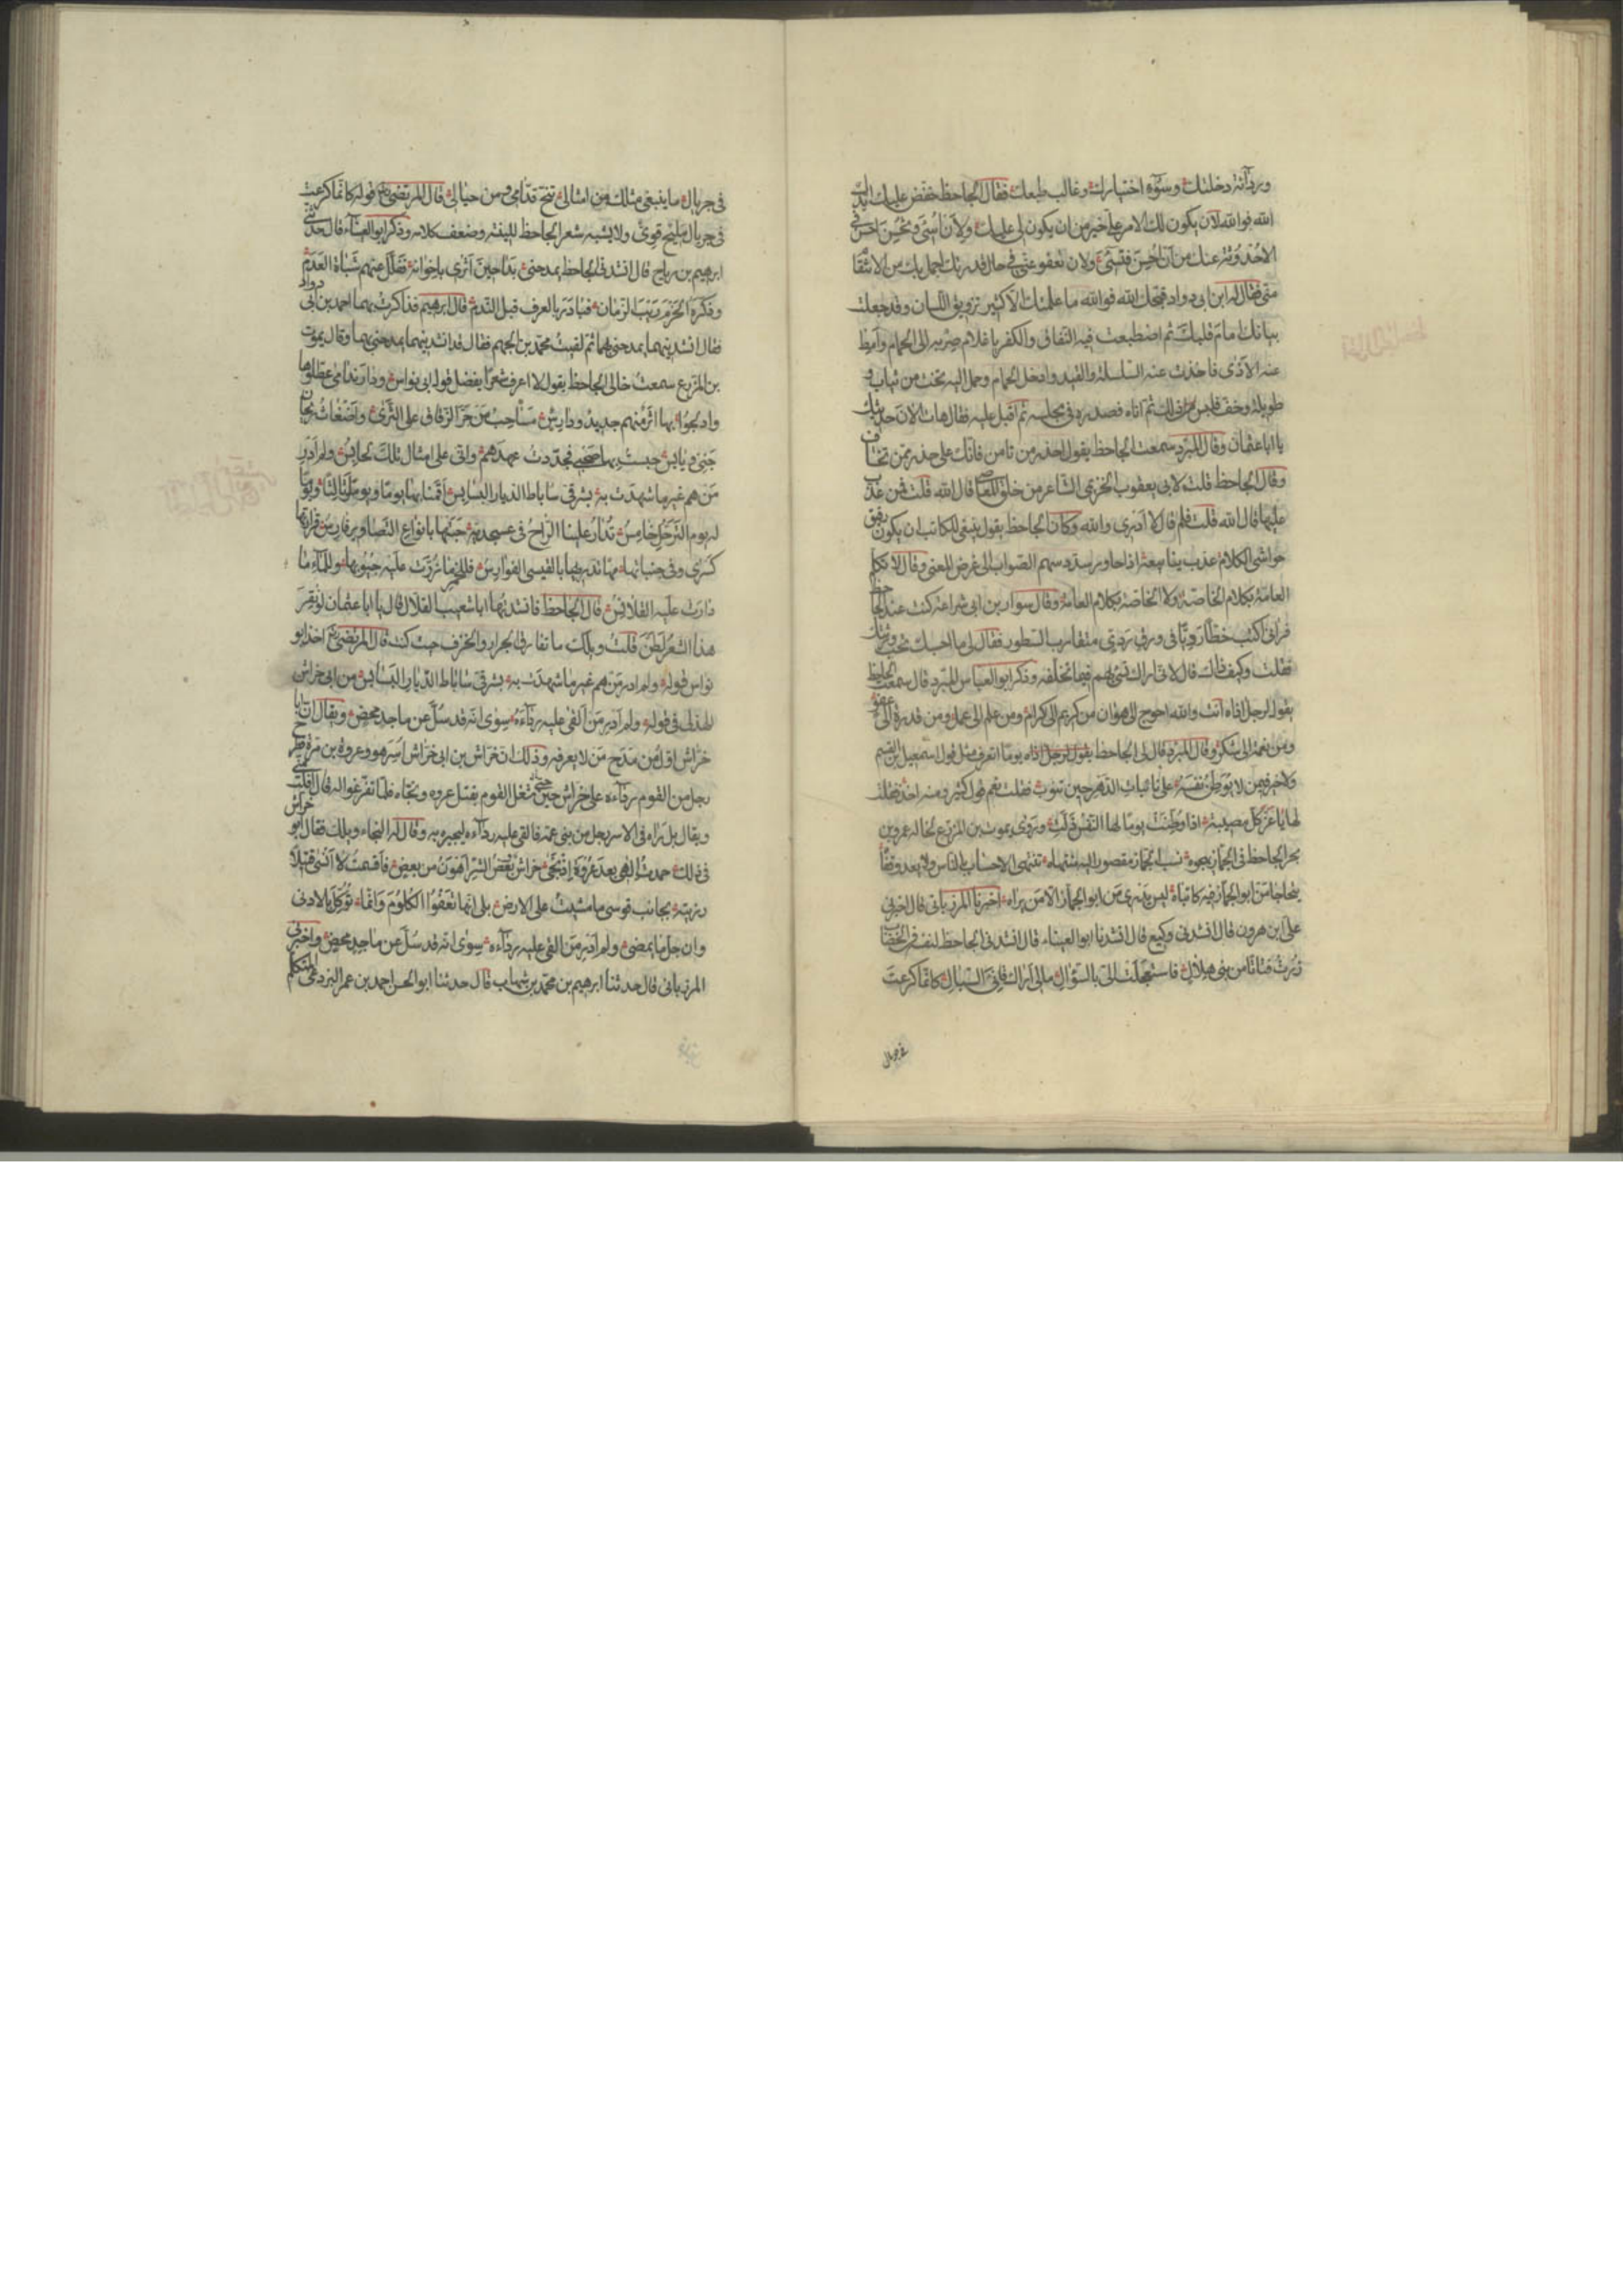 ورداءة دخلتك وسوء اختيارك وغالب طبعك فقال الجاحظ خفض عليك ايدك
الله فوالله لان يكون لك الامر علي خير من ان يكون لي عليك ولان اسئ وتحسن احسن في
الاحدوثة عنك من ان احسن فتسئ ولان تعفو عني في حال قدرتك اجمل بك من الانتقام
مني فقال له ابن ابي دواد قبحك الله فوالله ما علمتك الا كثير تزويق اللسان وقد جعلت
بيانك امام قلبك ثم اضطبعت فيه النفاق والكفر يا غلام صر به الى الحمام وامط
عنه الاذى فاخذت عنه السلسلة والقيد وادخل الحمام وحمل اليه تخت من ثياب و
طويلة وخف فلبس ذلك ثم اتاه فصدره في مجلسه ثم اقبل عليه فقال هات الان حديثك
يا ابا عثمان وقال المبرد سمعت الجاحظ يقول احذر من تامن فانك على حذر ممن تخاف
وقال الجاحظ قلت لابي يعقوب الخزيمي الشاعر من خلق المعاصي قال الله قلت فمن عذب
عليها قال الله قلت فلم قال لا ادري والله وكان الجاحظ يقول ينبغي للكاتب ان يكون رقيق
حواشي الكلام عذب ينابيعه اذا حاور سدد سهم الصواب الى غرض المعنى وقال لا تكلم
العامة بكلام الخاصة ولا الخاصة بكلام العامة وقال سوار بن ابي شراعة كنت عند الجاحظ
فراني اكتب خطا رديا في ورق ردي متقارب السطور فقال لي ما احسبك تحب ورثتك
فقلت وكيف ذاك قال لاني اراك تسئ بهم فيما تخلفه وذكر ابو العباس المبرد قال سمعت الجاحظ
يقول لرجل اذاه انت والله احوج الى هوان من كريم الى كرام ومن علم الى عمل ومن قدرة الى عفو
ومن نعمة الى شكر وقال المبرد قال لي الجاحظ يوما اتعرف مثل قول اسمعيل بن القسم
ولا خير فيمن لا يوطن نفسه على نائبات الدهر حين تنوب فقلت نعم قول كثير ومنه اخذ فقلت
لها يا عز كل مصيبة اذا وطنت يوما لها النفس ذلت وروى يموت بن المزرع لخاله عمرو بن
بحر الجاحظ في الجماز يهجوه نسب الجماز مقصور اليه منتهاه تنتهي الاحساب بالناس ولا يعدو قفاه
يتحاجا من ابو الجماز فيه كاتباه ليس يدري من ابو الجماز الا من يراه اخبرنا المرزباني قال اخبرني
علي بن هرون قال انشدني وكيع قال انشدنا ابو العيناء قال انشدني الجاحظ لنفسه في الخضاب
زرت فتاة من بني هلال فاستعجلت الي بالسؤال مالي اراك قاني السبال كانما كرعت
في جريال
في جريال ما ينبغي مثلك من امثالي تنح قدامي ومن حيالي قال المرتضى قوله كانما كرعت
في جريال مليح قوي ولا يشبه شعر الجاحظ للينه وضعف كلامه وذكر ابو العيناء قال حدثني
ابرهيم بن رباح قال انشدني الجاحظ يمدحني بدا حين اثرى باخوانه ففلل عنهم شباة العدم
وذكره الحزم ريب الزمان فبادر بالعرف قبل الندم قال ابرهيم فذاكرت بهما احمد بن ابي دواد
فقال انشدنيهما يمدحني بهما ثم لقيت محمد بن الجهم فقال قد انشدنيهما يمدحني بهما وقال يموت
بن المزرع سمعت خالي الجاحظ يقول لا اعرف شعرا يفضل قول ابي نواس ودار ندامى عطلوها
وادلجوا بها اثر منهم جديد ودارس مساحب من جر الزقاق على الثرى واضغاث ريحان
جني ويابس حبست بها صحبي فجددت عهدهم واني على امثال تلك لحابس ولم ادر
من هم غير ما شهدت به بشرقي ساباط الديار البسابس اقمنا بها يوما ويوما وثالثا ويوما
له يوم الترحل خامس تدار علينا الراح في عسجدية حبتها بانواع التصاوير فارس قرارتها
كسرى وفي جنباتها مها تدريها بالقسي الفوارس فللخمر ما زرت عليه جيوبها وللماء ما
دارت عليه القلانس قال الجاحظ فانشدتها ابا شعيب القلال قال يا ابا عثمان لو نقر
هذا الشعر لطن قلت ويلك ما تفارق الجرار والخزف حيث كنت قال المرتضى اخذ ابو
نواس قوله ولم ادر من هم غير ما شهدت به بشرقي ساباط الديار البسابس من ابي خراش
الهذلي في قوله ولم ادر من القى عليه رداءه سوى انه قد سل عن ماجد محض ويقال ان ابا
خراش اول من مدح من لا يعرفه وذلك ان خراش بن ابي خراش اسر هو وعروة بن مرة فطرح
رجل من القوم رداءه على خراش حين شغل القوم بقتل عروه ونجاه فلما تفرغوا له قال افلت مني
ويقال بل راه في الاسر رجل من بني عمه فالقى عليه رداءه ليجيره به وقال له النجاء ويلك فقال ابو خراش
في ذلك حمدت الهي بعد عروة اذ نجى خراش وبعض الشر اهون من بعض فاقسمت لا انسى قتيلا
رزيته بجانب قوسى ما مشيت على الارض بلى انها تعفوا الكلوم وانما نوكل بالادنى
وان جل ما يمضي ولم ادر من القى عليه رداءه سوى انه قد سل عن ماجد محض واخبرني
المرزباني قال حدثنا ابرهيم بن محمد بن شهاب قال حدثنا ابو الحسن احمد بن عمر البردعي المتكلم